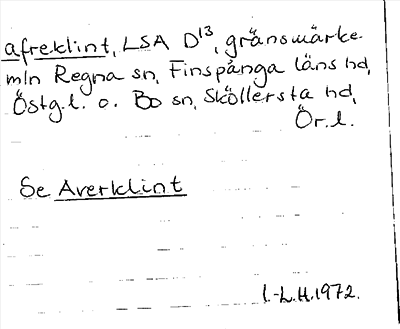 afreklint, LSA D13, gränsmärke
mln Regna sn, Finspånga läns hd,
Östg.l. o. Bo sn, Sköllersta hd,
Ör.l.
Se Averklint
I.-L.H.1972.